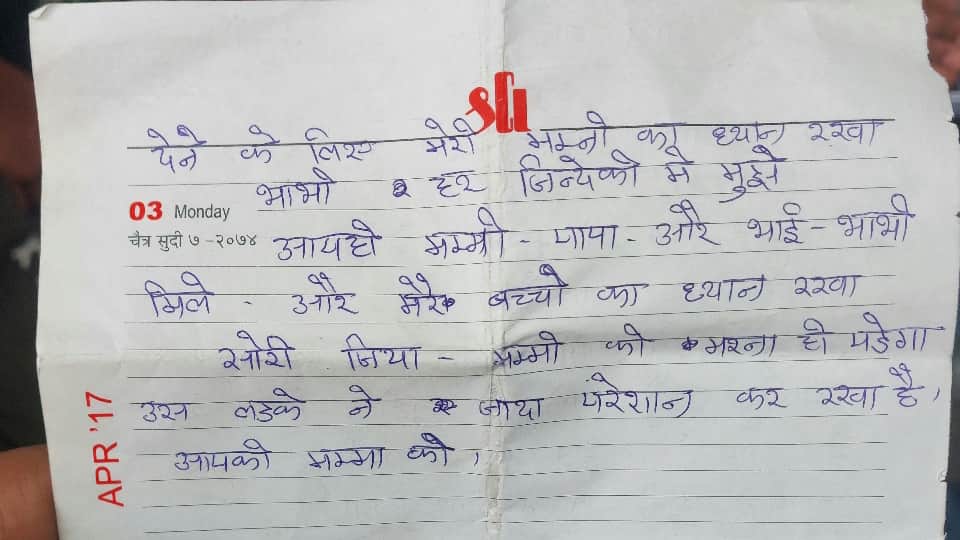 SGI
देने के लिए मेरी मम्मी का ध्यान रखा
भाभी हर जिन्देकी मे मुझे
03 Monday
चैत्र सुदी ७ -२०७४
आपही मम्मी - पापा - और भाई - भाभी
मिले - और मेरे बच्चो का ध्यान रखा
सोरी जिया - मम्मी को मरना ही पडेगा
उस लडके ने जादा परेशान कर रखा है,
आपकी मम्मा को,
APR '17